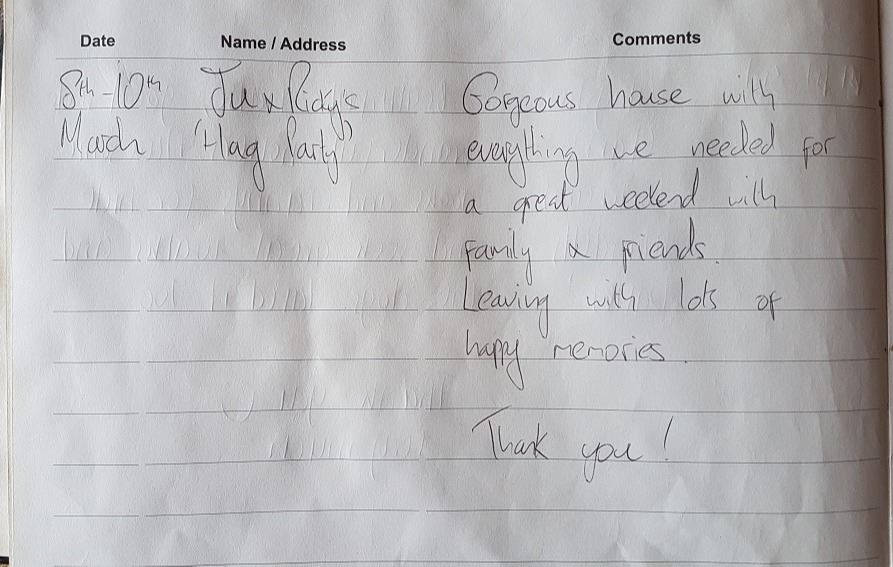 Date Name / Address Comments
8th-10th Ju x Ricky's Gorgeous house with
March 'Hag Party' everything we needed for
a great weekend with
family & friends.
Leaving with lots of
happy memories.
Thank you!